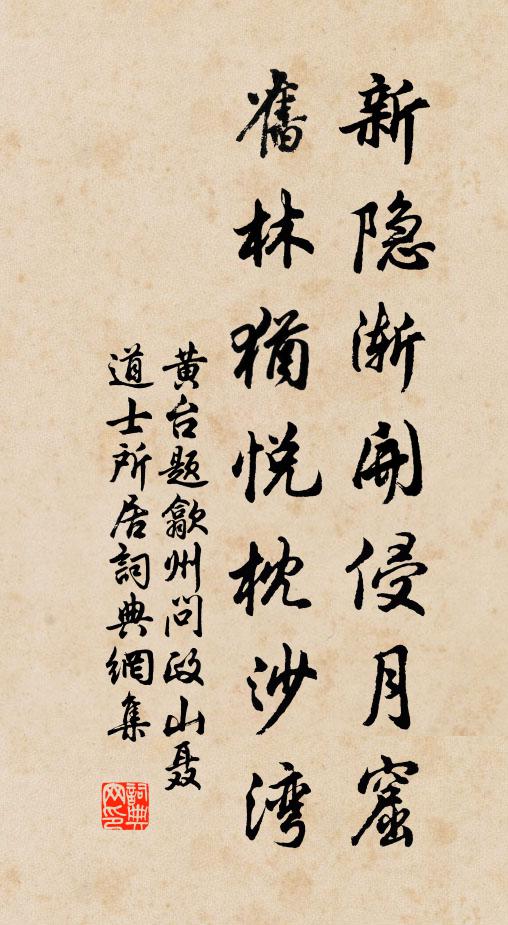 新隐渐开侵月窟
旧林犹悦枕沙湾
黄台题歙州问政山聂
道士所居詞典網集
詞典
网印